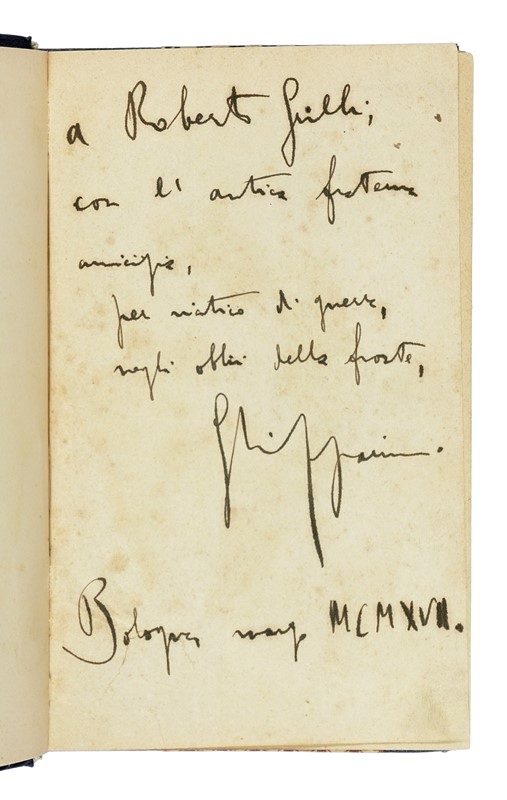 a Roberto Grilli,
con l' antica fraterna
amicizia,
per viatico di guerra,
negli oblii della fronte,
G Lipparini.
Bologna marzo MCMXVII.